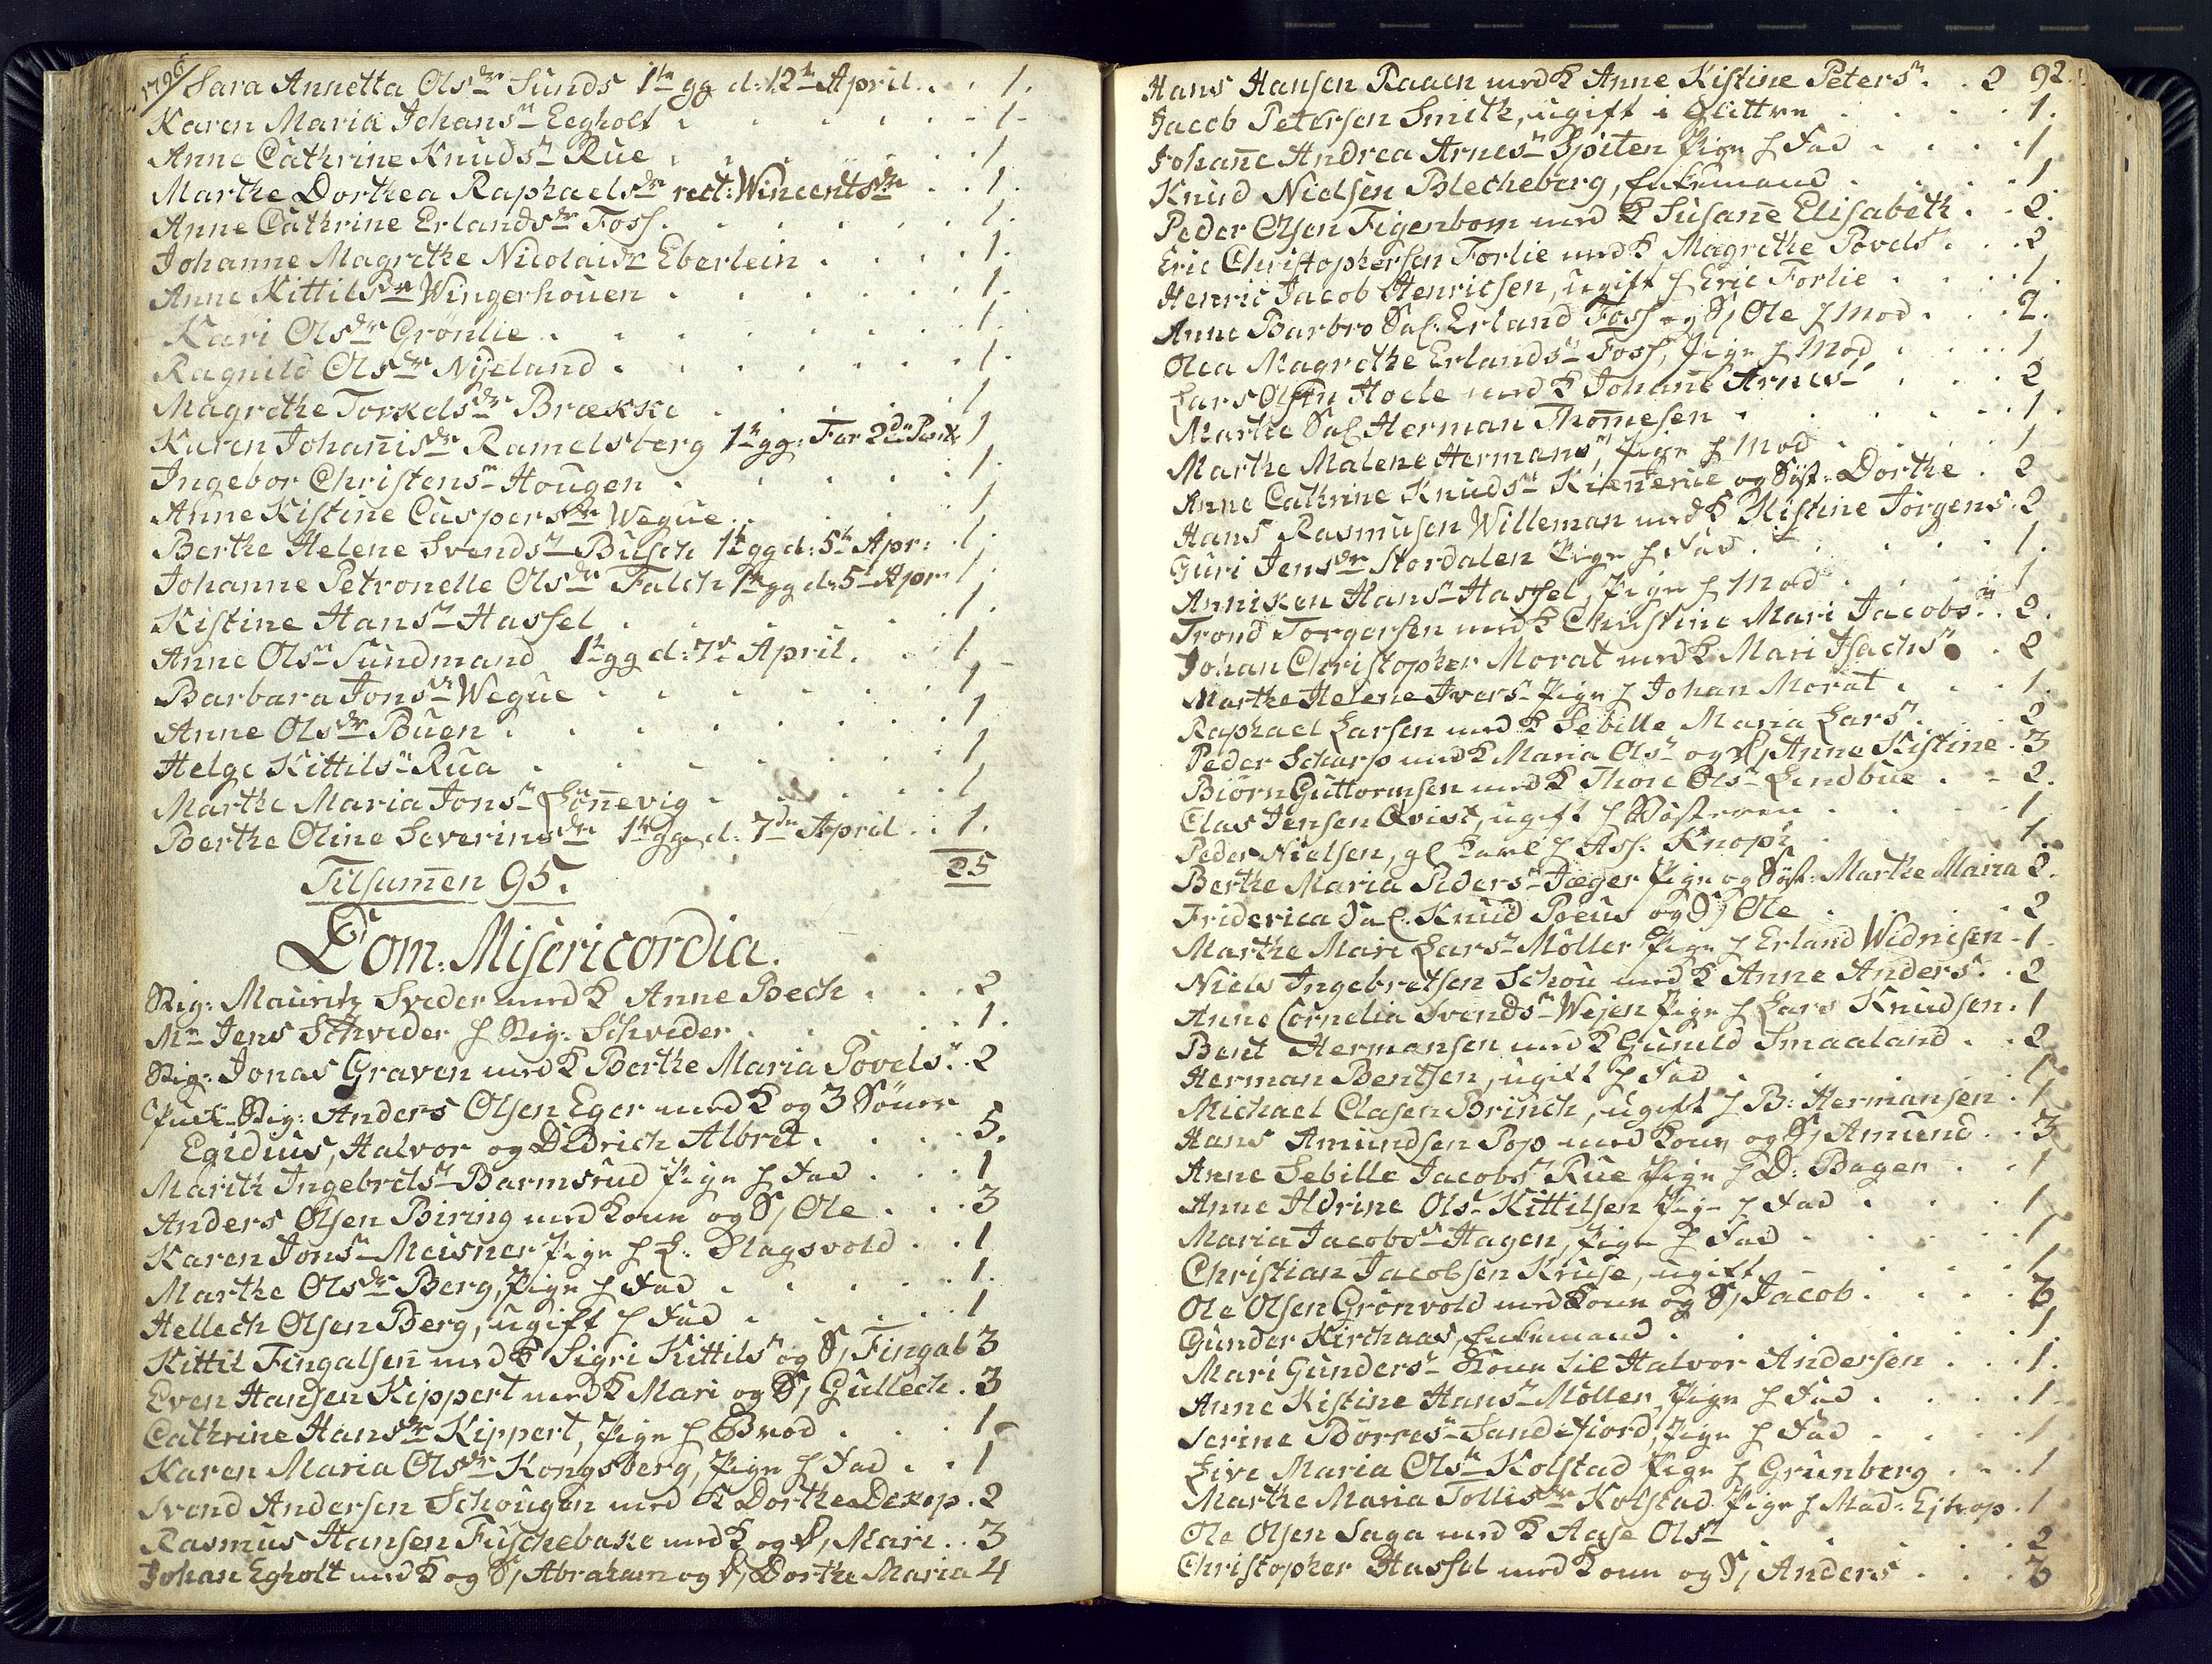 1796/ Sara Annetta Olsdr Sunds 1te gg d: 12te April. . . 1.
Karen Maria Johansdr Eegholt . . . . . . - 1 -
Anne Cathrine Knudsdr Rue . . . . . . . 1
Marthe Dorthea Raphaelsdr rect: Wincentsdr . . 1.
Anne Cathrine Erlandsdr Foss . . . . . . 1.
Johanne Magrethe Nicolaidr Eberlein . . . . 1.
Anne Kittilsdr Wingerhouen . . . . . . 1.
Kari Olsdr Grönlie . . . . . . . 1.
Ragnild Olsdr Nyeland . . . . . . . 1.
Magrethe Torkelsdr Brække . . . . . 1
Karen Johannisdr Ramelsberg 1te gg: Før 2den Paask: 1
Ingebor Christensdr Hougen . . . . . 1.
Anne Kistine Caspersdr Wegue . . . . . 1
Berthe Helene Svendsdr Busch 1te gg d: 5te Apr: . 1.
Johanne Petronelle Olsdr Falch 1te gg d: 5te Apr: 1.
Kistine Hansdr Hassel . . . . . . 1.
Anne Olsdr Sundmand 1te gg d: 7de April. . . 1
Barbara Jonsdr Wegue . . . . . . 1 -
Anne Olsdr Buen . . . . . . . 1
Helge Kittilsdr Rua . . . . . . . 1
Marthe Maria Jonsdr Lönnevig . . . . . 1
Berthe Oline Severinsdr 1te gg d: 7de April . . 1.
Tilsammen 95. 25
Dom: Misericordia.
Sig: Mauritz Sveder med K Anne Bech . . . 2
Mr Jens Schveder h Sig: Schveder . . . . 1.
Sig: Jonas Graven med K Berthe Maria Povelsdr . 2
Sig: Anders Olsen Eger med K og 3 Sönner
Egidius, Halvor og Didrich Albret . . . . 5.
Marith Ingebretsdr Barmsrud Pige h Fad . . . 1
Anders Olsen Biring med Kone og S, Ole . . . 3
Karen Jonsdr Meisner Pige h L: Slagsvold . . 1
Marthe Olsdr Berg, Pige h Fad . . . . . 1.
Hellech Olsen Berg, ugift h Fad . . . . . 1
Kittil Fingalsen med K Sigri Kittilsdr og S, Fingal 3
Even Hansen Kippert med K Mari og S, Gullech . 3
Cathrine Hansdr Kippert, Pige h Brod . . . 1
Karen Maria Olsdr Kongsberg, Pige h Fad . . 1
Svend Andersen Schougen med K Dorthe Dexop . 2
Rasmus Hansen Fuschebake med K og D, Mari . . 3
Johan Egholt med K og S, Abraham og D, Dorthe Maria 4
Hans Hansen Raaen med K Anne Kistine Petersdr . . 2 92.
Jacob Petersen Smith, ugift i Glittre . . . . 1.
Johanne Andrea Arnesdr Spiten Pige h Fad . . . . 1
Knud Nielsen Blecheberg, Enkemand . . . . 1
Peder Olsen Figenbom med K Susanne Elisabeth . . 2.
Eric Christophersen Forlie med K Magrethe Povelsdr . . 2
Henric Jacob Henricsen, ugift h Eric Forlie . . . 1.
Anne Barbro Sal: Erland Foss og S, Ole h Mod . . . 2.
Olea Magrethe Erlandsdr Foss, Pige h Mod . . . . 1
Lars Olsen Hoele med K Johanne Arnesdr . . . 2
Marthe Sal Herman Thomesen . . . . . . 1.
Marthe Malene Hermansdr, Pige h Mod . . . . 1
Anne Cathrine Knudsdr Kiennerue og Syst: Dorthe . 2
Hans Rasmusen Willeman med K Kistine Jörgens . 2
Guri Jensdr Stordalen Pige h Fad . . . . . 1.
Anniken Hansdr Hassel, Pige h Mod . . . . . 1
Trond Torgersen med K Christine Mari Jacobsdr . 2.
Johan Christopher Morat med K Mari Isachsdr . 2
Marthe Helene Iversdr Pige h Johan Morat . . . 1.
Raphael Larsen med K Sebille Maria Larsdr . . . 2
Peder Scharp med K Maria Olsdr og D, Anne Kistine . 3
Biörn Guttormsen med K Thore Olsdr Lendbue . . 2.
Clas Jensen Qvist, ugift h . . . . 1
Peder Nielsen, gl Karl h Ass. Knoph . . . . 1.
Berthe Maria Pedersdr Jæger Pige og Syst: Marthe Maria 2.
Friderica Sal: Knud Poeus og S, Ole . . . . 2
Marthe Mari Larsdr Möller Pige h Erland Widnisen - 1.
Niels Ingebretsen Schou med K Anne Andersdr . . 2
Anne Cornelia Svendsdr Wejen Pige h Lars Knudsen . 1
Bent Hermansen med K Gunild Smaaland . . 2
Herman Bentsen, ugift h Fad . . . . . 1.
Michael Clasen Brinch, ugift h B: Hermansen . 1
Hans Amundsen Pop med Kone og S, Amund . . 3
Anne Sebille Jacobsdr Rue Pige h D: Bager . . 1
Anne Aldrine Olsdr Kittilsen Pige h Fad . . . 1
Maria Jacobsdr Hagen, Pige h Fad . . . . 1
Christian Jacobsen Kruse, ugift . . . . 1
Ole Olsen Grönvold med Kone og S, Jacob . . . . 3
Gunder Kirchaas, Enkemand . . . . . . 1.
Mari Gundersdr Kone til Halvor Andersen . . . 1.
Anne Kistine Hansdr Möller, Pige h Fad . . . . 1.
Serine Börresdr Sandefiord, Pige h Fad . . . . 1
Live Maria Olsdr Kolstad Pige h Grünberg . . . 1
Marthe Maria Tollisdr Kolstad Pige h Mad: . 1
Ole Olsen Saga med K Aase Olsdr . . . . 2
Christopher Hassel med Kone og S, Anders . . . 3